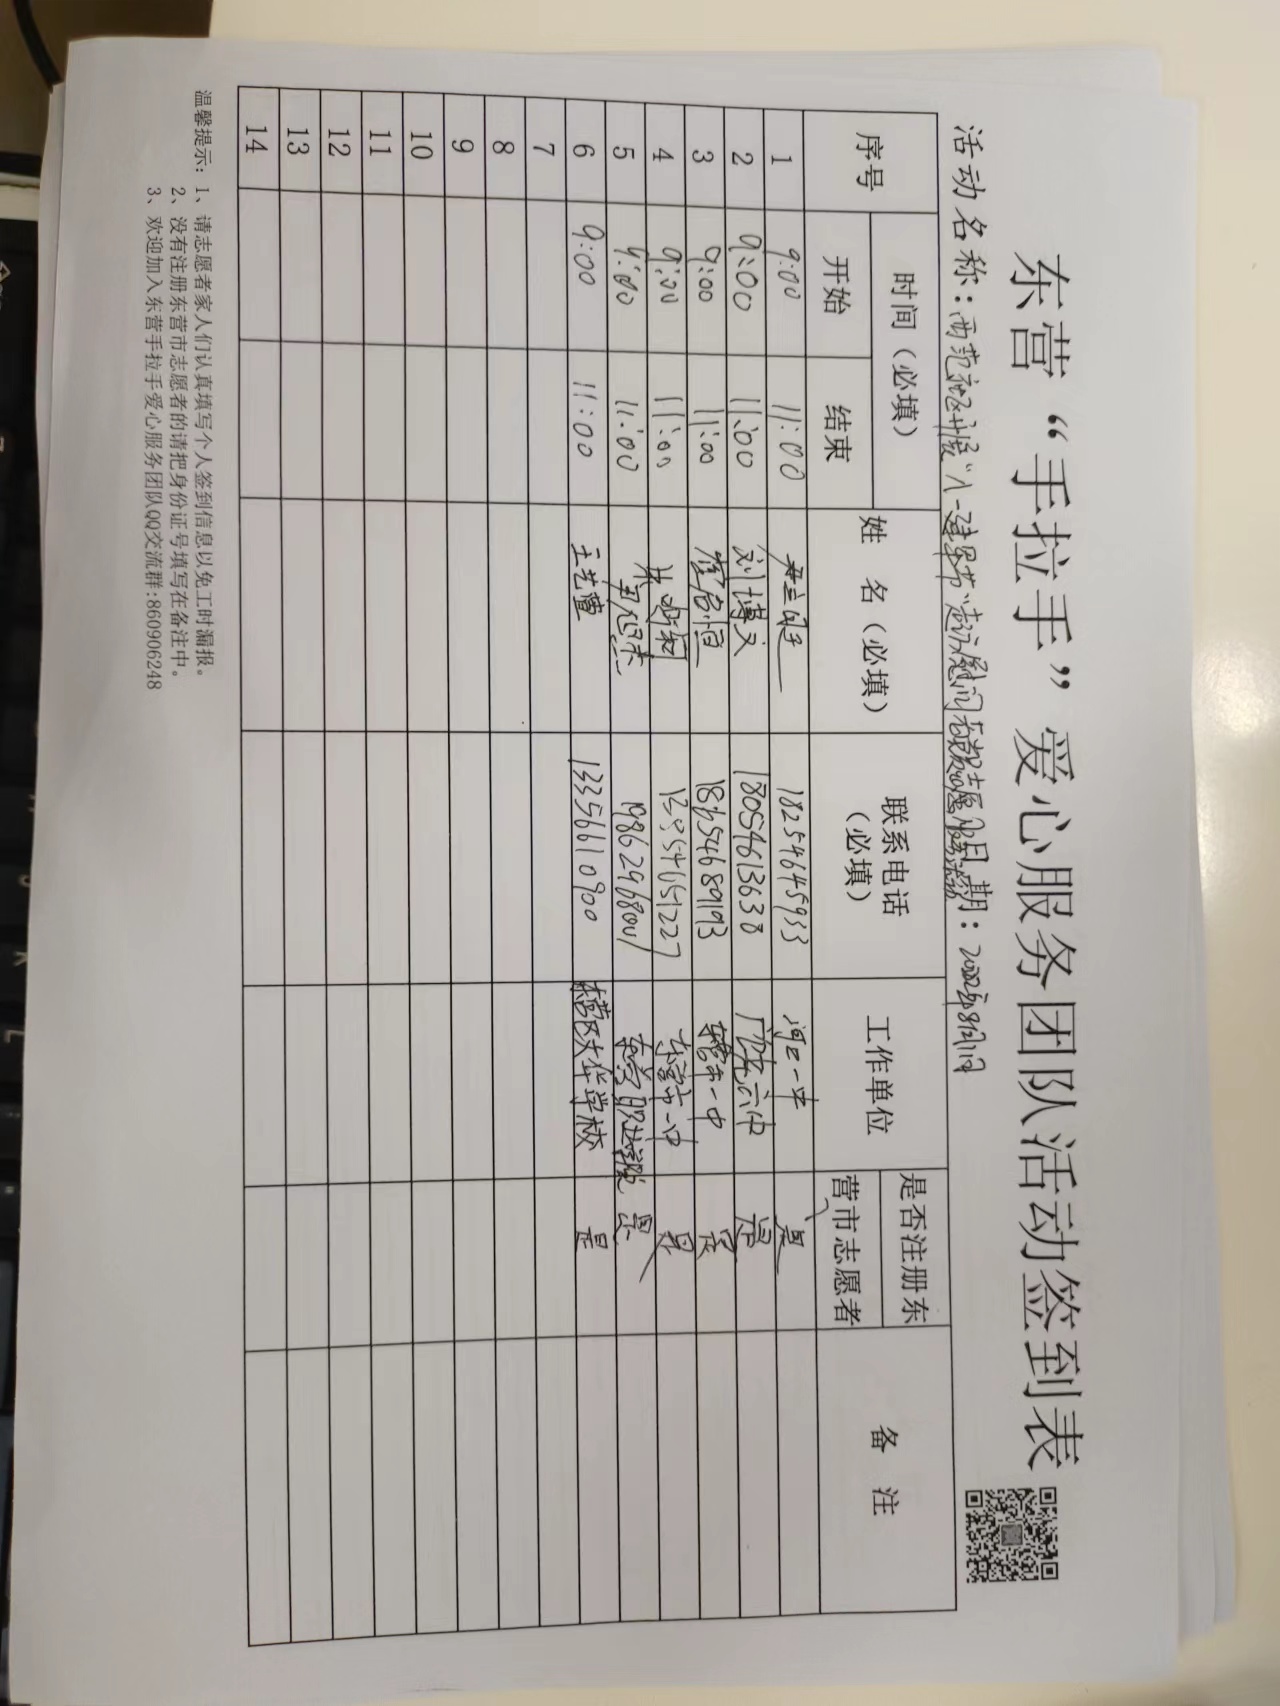 东营“手拉手”爱心服务团队活动签到表
活动名称：西范社区开展“八一建军节”走访慰问 志愿服务活动 日期：2022年8月1日
序号 时间（必填） 姓 名（必填） 联系电话（必填） 工作单位 是否注册东营市志愿者 备 注
开始 结束
1 9:00 11:00 18254645933 河口一中 是
2 9:00 11:00 刘博文 18054613638 六中 是
3 9:00 11:00 18654689193 东营市一中 是
4 9:00 11:00 东营市一中 是
5 9:00 11:00 19862968001 东营职业学院 是
6 9:00 11:00 王艺萱 13356610900 东营区大华学校 是
7
8
9
10
11
12
13
14
温馨提示：1、请志愿者家人们认真填写个人签到信息以免工时漏报。
2、没有注册东营市志愿者的请把身份证号填写在备注中。
3、欢迎加入东营手拉手爱心服务团队QQ交流群:860906248